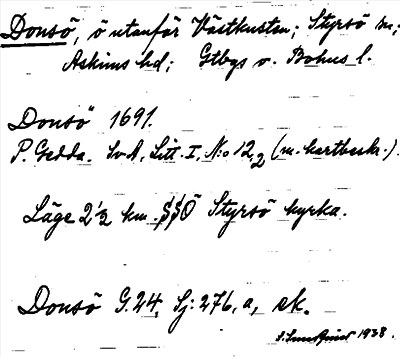 Donsö, ö utanför Västkusten; Styrsö sn;
Askims hd; Gtbgs o. Bohus l.
Donsö 1691.
P. Gedda. SvA, Litt. I, N:o 12,2 (m. kartbeskr.).
Läge 2 1/2 km SSÖ Styrsö kyrka.
Donsö G. 24, Sj: 276, a, ek.
1938.